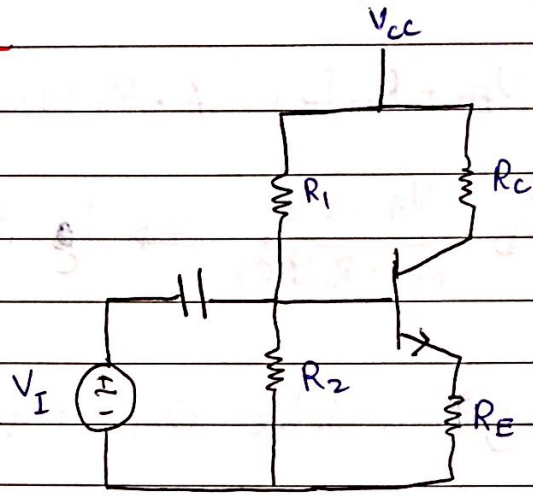 Vcc
R1
Rc
VI
R2
RE